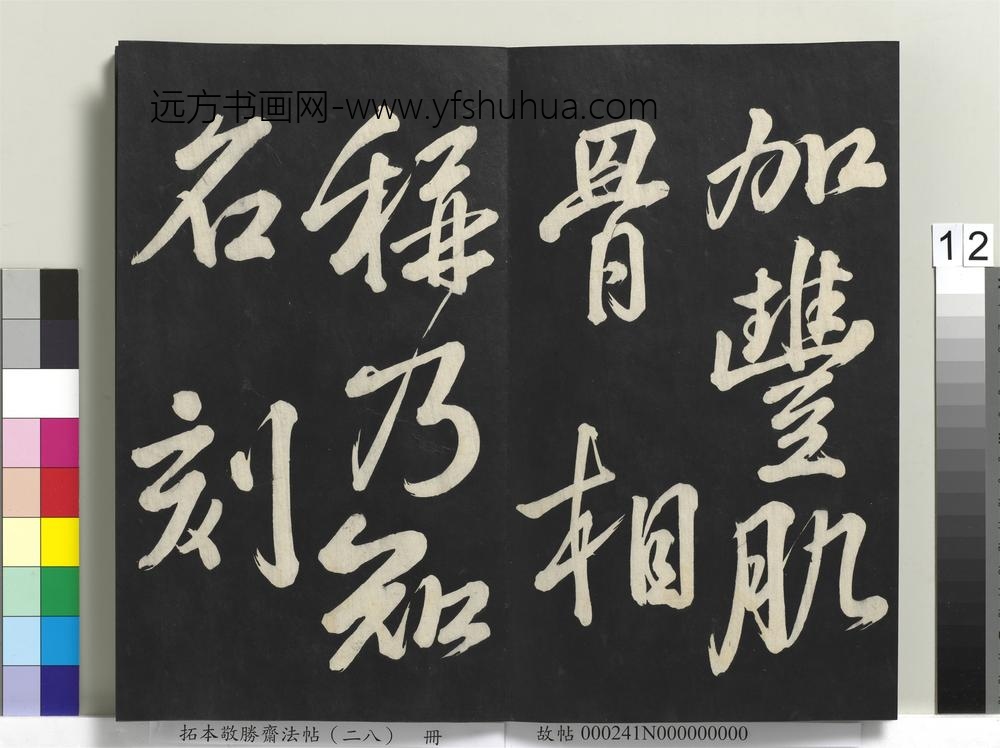 远方书画网-www.yfshuhua.com
加豐肌
骨相
稱乃知
名刻
12
拓本敬勝齋法帖(二八) 冊
故帖 000241N000000000